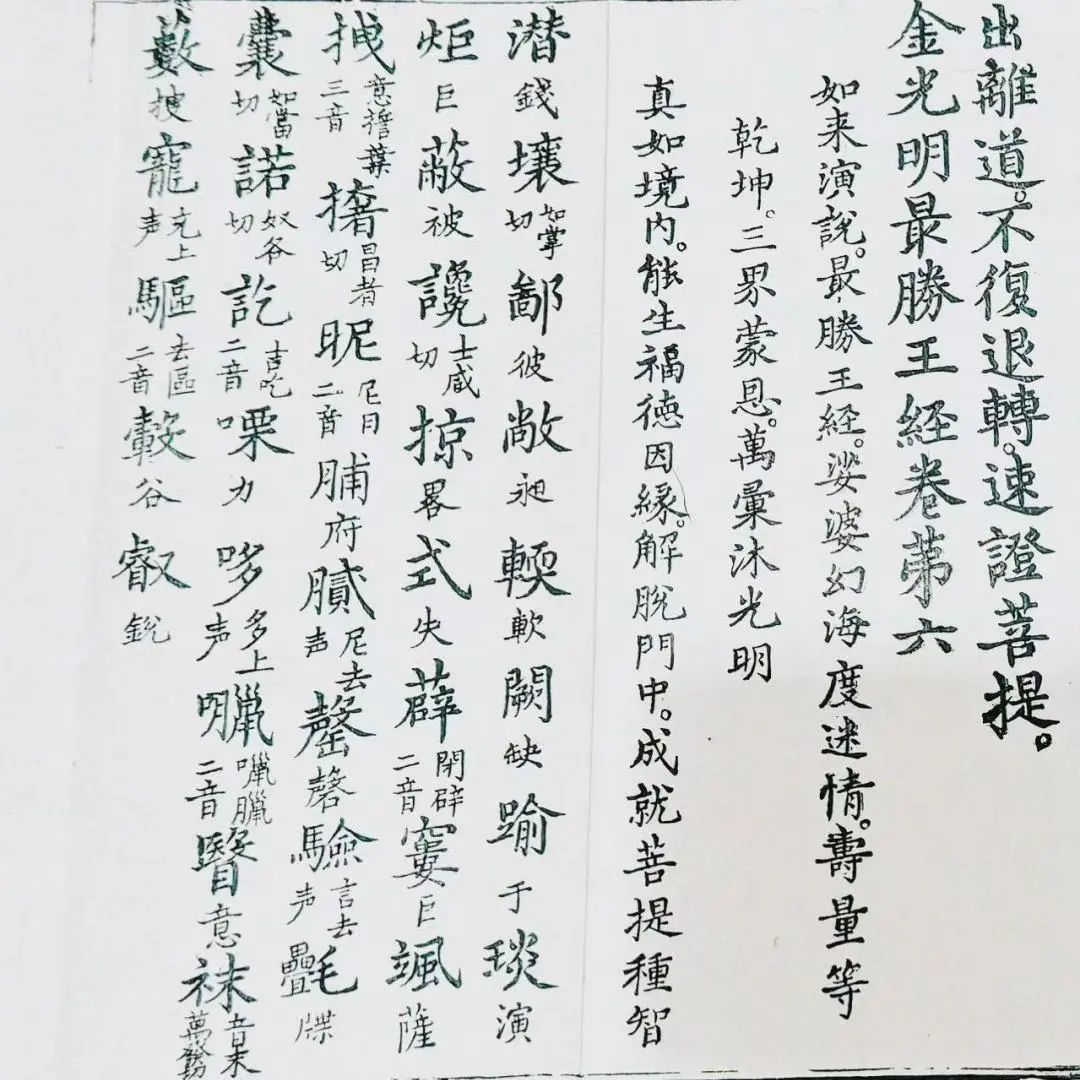 出離道。不復退轉。速證菩提。
金光明最勝王経卷第六
如来演說。最勝王経。娑婆幻海度迷情。壽量等
乾坤。三界蒙恩。萬彙沐光明
真如境内。能生福徳因緣。解脫門中。成就菩提種智
潜錢壤如掌切鄙彼敞昶輭軟闕缺踰于琰演
炬巨蔽被讒士咸切掠畧式失薜閉辟二音窶巨颯薩
拽意擔葉三音撦昌者切昵尼日二音脯府膩尼去声罄磬驗言去声㲲牒
囊如當切諾奴谷切訖吉吃二音㗚力哆多上声𦢌囒臘二音瞖意袜音末萬發
藪搜寵充上声驅去區二音轂谷叡銳